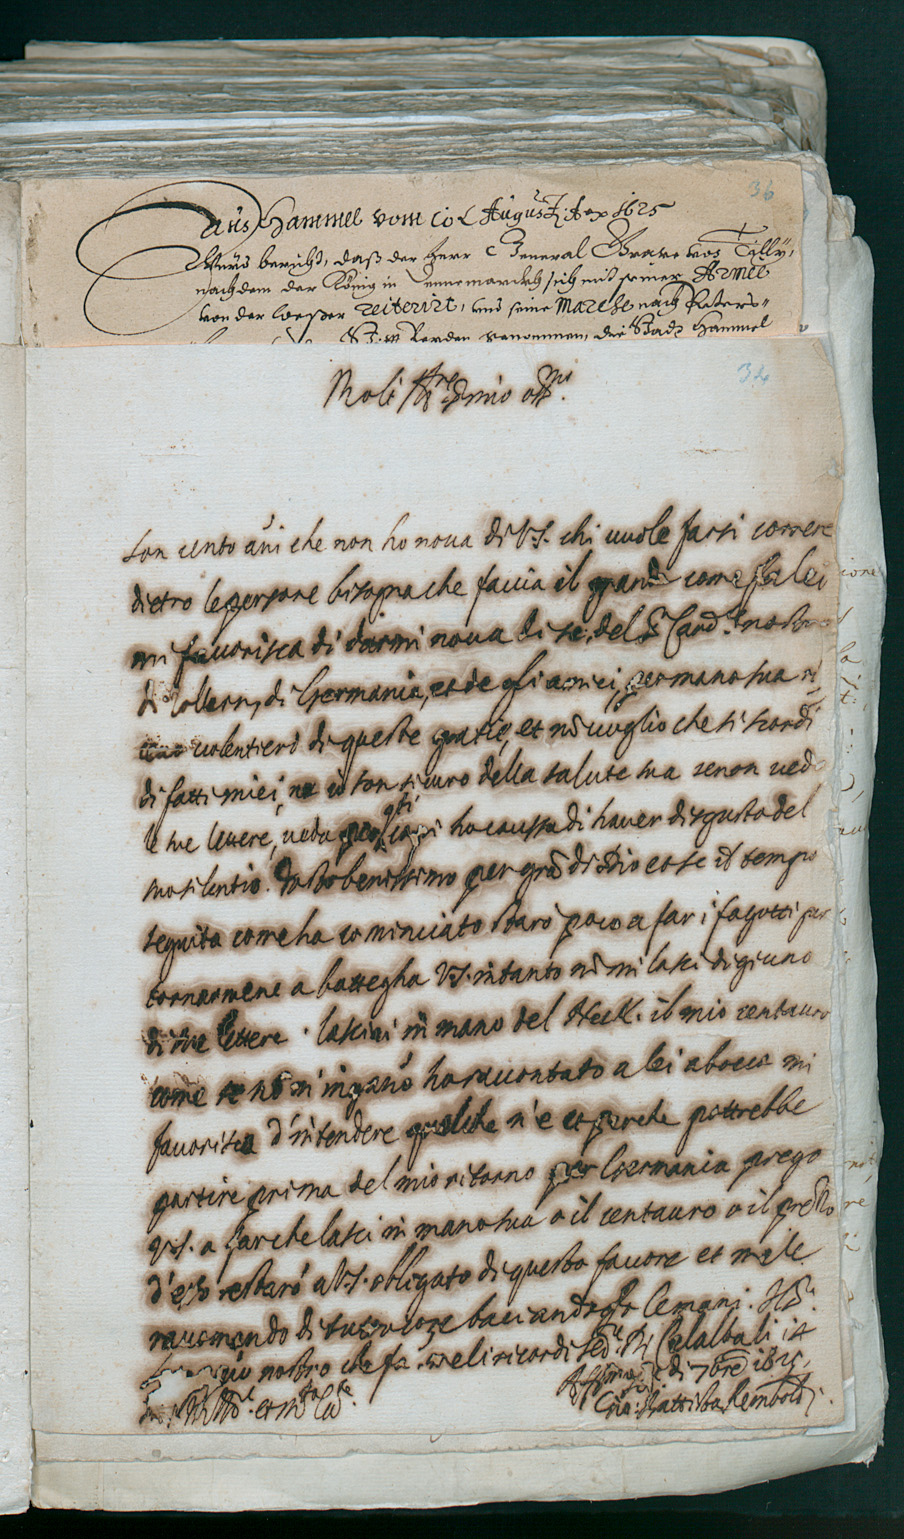 36
Auß Hammel vom 10 Augusti Ao 1625
bericht, daß der Herr General Grave von Tilly,
nachdem der König in Dennemarckh sich mit seiner Armee
von der Weeßer reiterirt, und seine Marche, nach Peters-
Verden genommen, die Stadt Hammel
34
Molt Ill.re S. mio oss.mo
Son cento añi che non ho noua di V.S. chi uuole farsi correre
dietro le persone bisogna che faccia il grande come fa lei
mi fauorisca di darmi noua di se, del S.r Card.le nostro
di Zollern, di Germania, et de gli amici, per mano sua
uolentieri di queste gratie, et nõ uoglio che si scordi
di fatti miei, ne io son sicuro della salute sua se non uedo
le sue lettere, ueda ho caussa di hauer disgusto del
suo silentio. Io sto benissimo per grã di Dio et se il tempo
seguita come ha cominciato starò poco a far i fagotti per
tornarmene a bottegha V.S. intanto nõ mi lasci digiuno
di sue lettere. lasciai in mano del Heck. il mio centauro
come se nõ m'inganõ ho raccontato a lei a bocca mi
fauorisca d'intendere quelche n'è et perche potrebbe
partire prima del mio ritorno per Germania prego
V.S. a far che lasci in mano sua o il centauro o il prezzo
d'esso restarò a V.S. obligato di questo fauore et me le
raccomando di tutto core baciandogli le mani.
nostro che fa. me li ricordi
di 7bre 1625.
Gio: Battista Remboldi